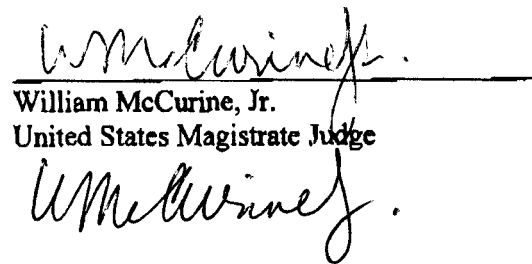 WMcCurine Jr.
William McCurine, Jr.
United States Magistrate Judge
WMcCurine J.